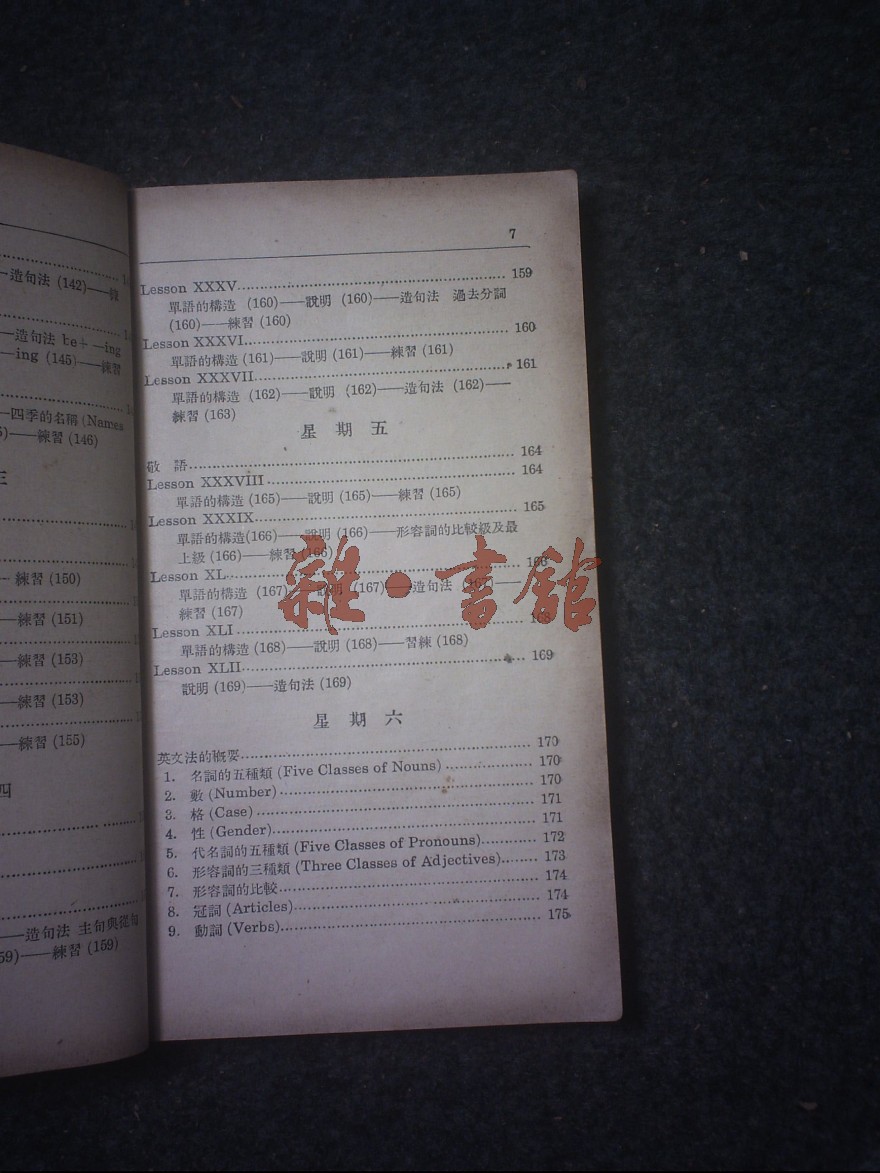 造句法 (142)——
造句法 be+ —ing
—ing (145)——練習
四季的名稱 (Names
——練習 (146)
三
練習 (150)
——練習 (151)
——練習 (153)
——練習 (153)
——練習 (155)
四
——造句法 主句與從句
59)——練習 (159)
7
Lesson XXXV 159
單語的構造 (160)——說明 (160)——造句法 過去分詞
(160)——練習 (160)
Lesson XXXVI 160
單語的構造 (161)——說明 (161)——練習 (161)
Lesson XXXVII 161
單語的構造 (162)——說明 (162)——造句法 (162)——
練習 (163)
星期五
敬語 164
Lesson XXXVIII 164
單語的構造 (165)——說明 (165)——練習 (165)
Lesson XXXIX 165
單語的構造(166)——說明 (166)——形容詞的比較級及最
上級 (166)——練習 (166)
Lesson XL 166
單語的構造 (167)——說明 (167)——造句法 (167)——
練習 (167)
Lesson XLI 168
單語的構造 (168)——說明 (168)——習練 (168)
Lesson XLII 169
說明 (169)——造句法 (169)
星期六
英文法的概要 170
1. 名詞的五種類 (Five Classes of Nouns) 170
2. 數 (Number) 170
3. 格 (Case) 171
4. 性 (Gender) 171
5. 代名詞的五種類 (Five Classes of Pronouns) 172
6. 形容詞的三種類 (Three Classes of Adjectives) 173
7. 形容詞的比較 174
8. 冠詞 (Articles) 174
9. 動詞 (Verbs) 175
雜·書館